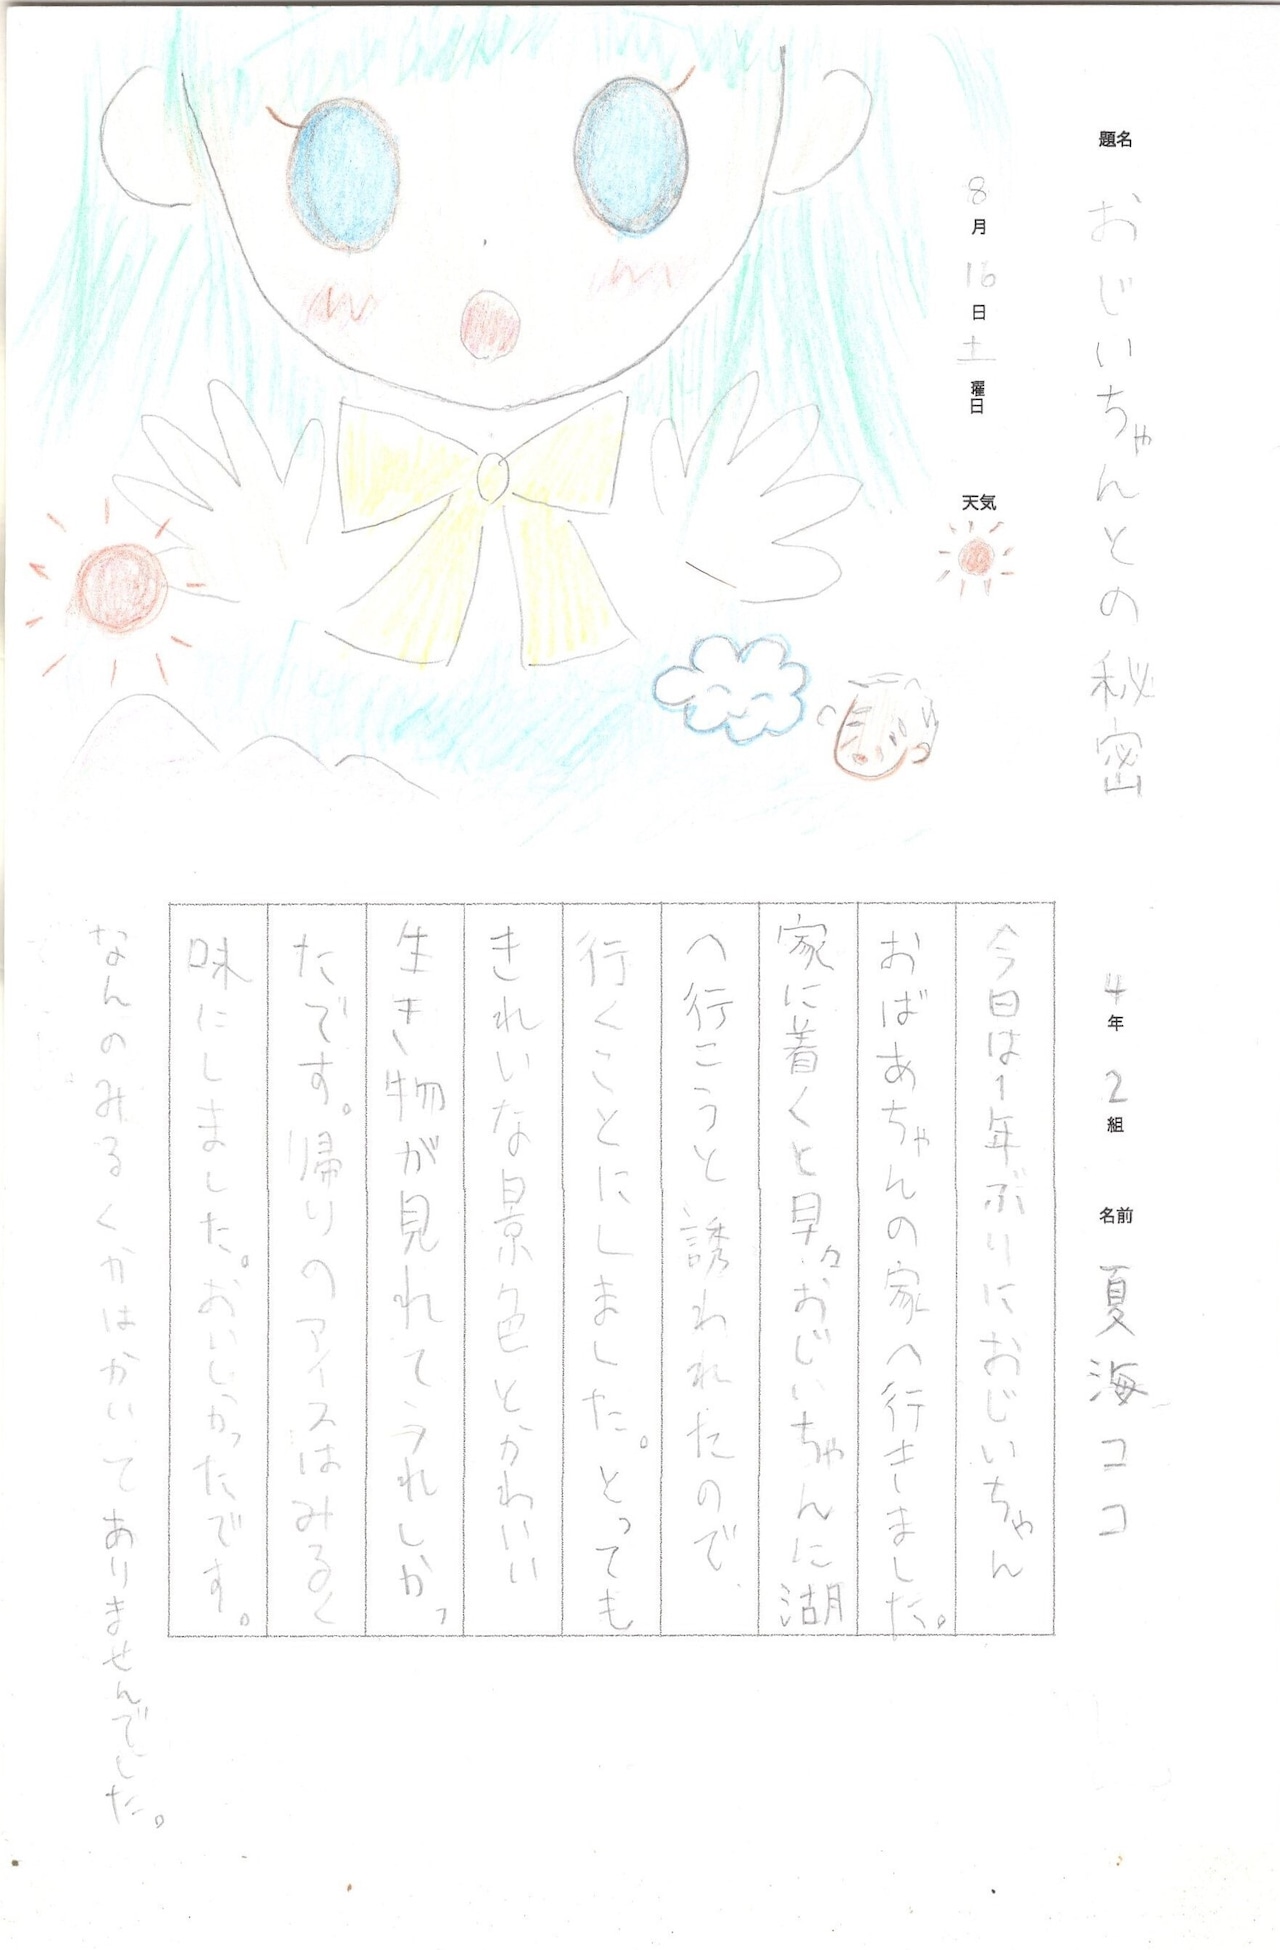 題名 おじいちゃんとの秘密
8月16日土曜日 天気
4年2組 名前 夏海ココ
今日は1年ぶりにおじいちゃん
おばあちゃんの家へ行きました。
家に着くと早々おじいちゃんに湖
へ行こうと誘われたので、
行くことにしました。とっても
きれいな景色とかわいい
生き物が見れてうれしかっ
たです。帰りのアイスはみるく
味にしました。おいしかったです。
なんのみるくかはかいてありませんでした。